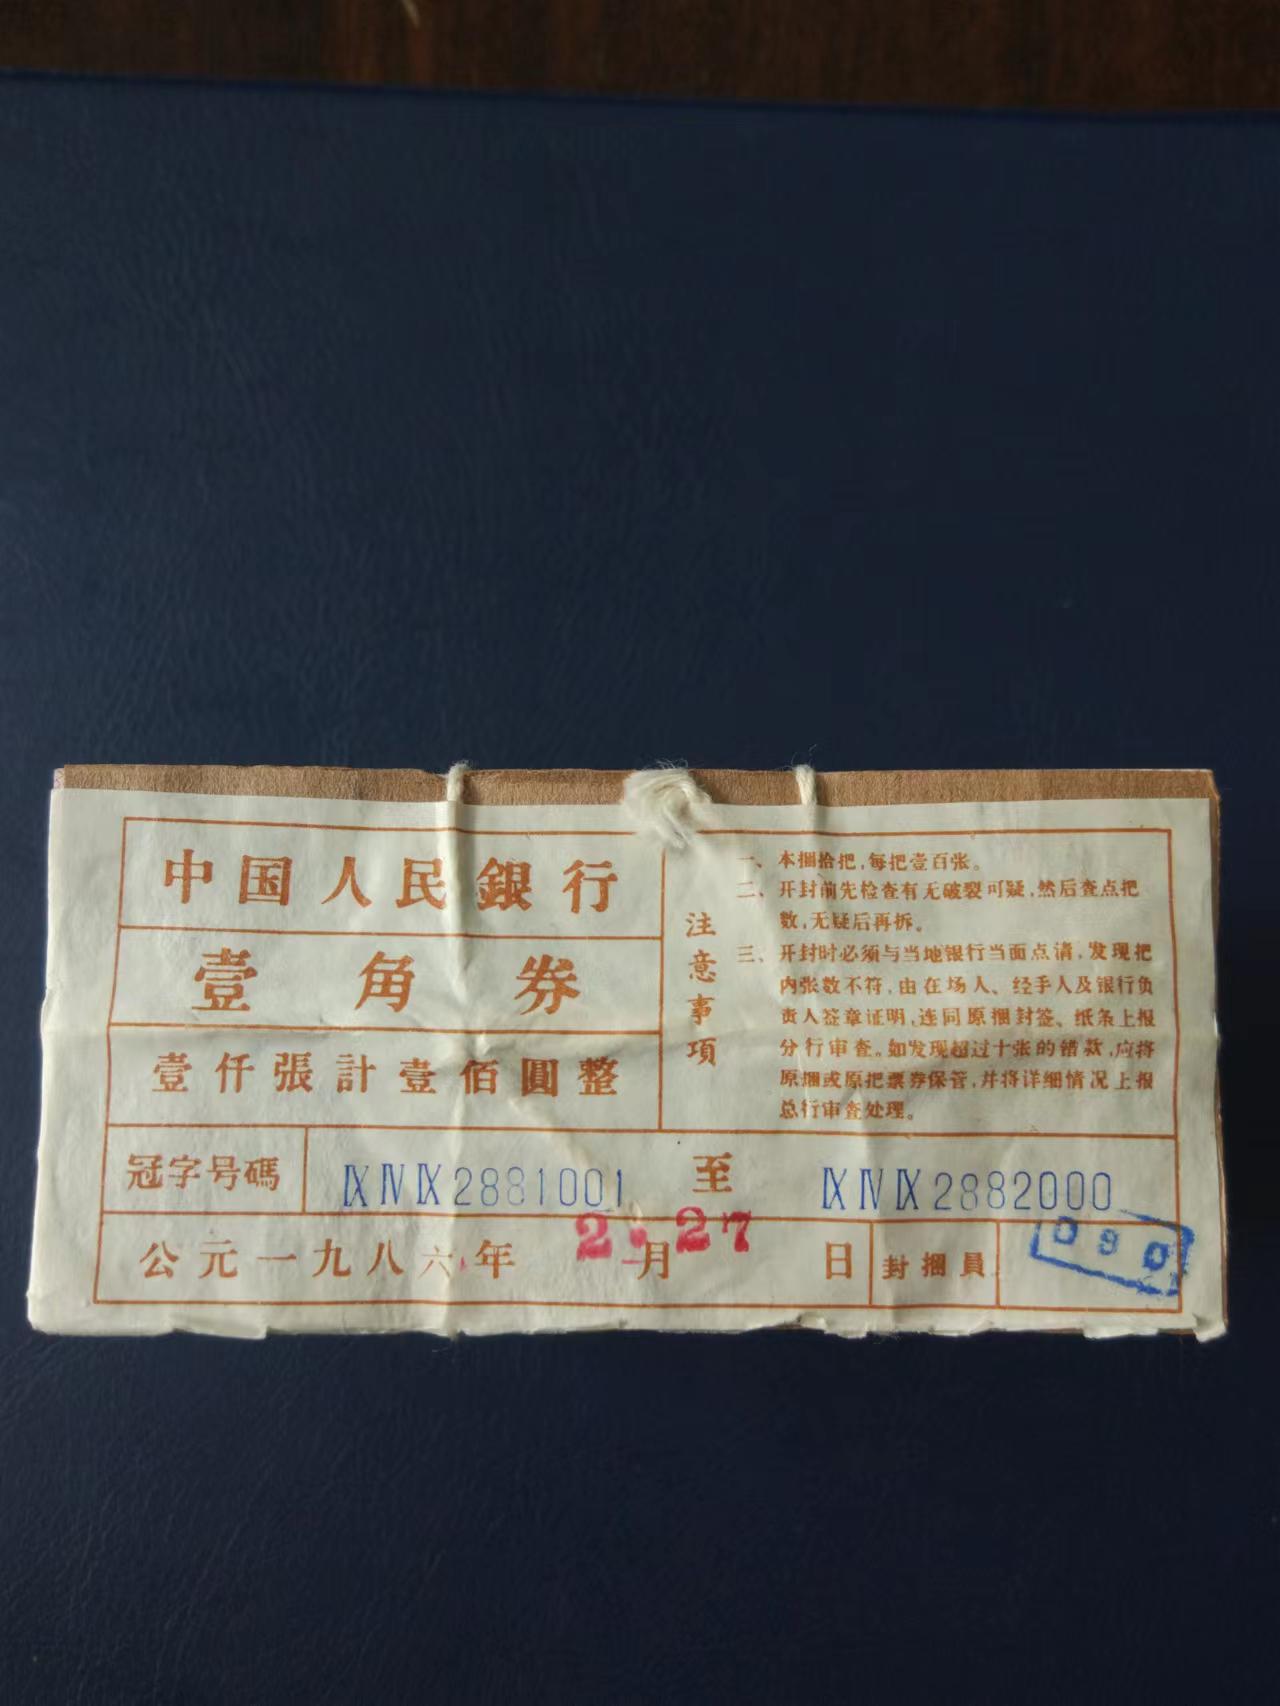 中国人民銀行
壹角券
壹仟張計壹佰圓整
注意事項
一、本捆拾把，每把壹百张。
二、开封前先检查有无破裂可疑，然后查点把
数，无疑后再拆。
三、开封时必须与当地银行当面点清，发现把
内张数不符，由在场人、经手人及银行负
责人签章证明，连同原捆封签、纸条上报
分行审查。如发现超过十张的错款，应将
原捆或原把票券保管，并将详细情况上报
总行审查处理。
冠字号碼 ⅨⅣⅨ2881001 至 ⅨⅣⅨ2882000
公元一九八六年 2月27日 封捆員 090